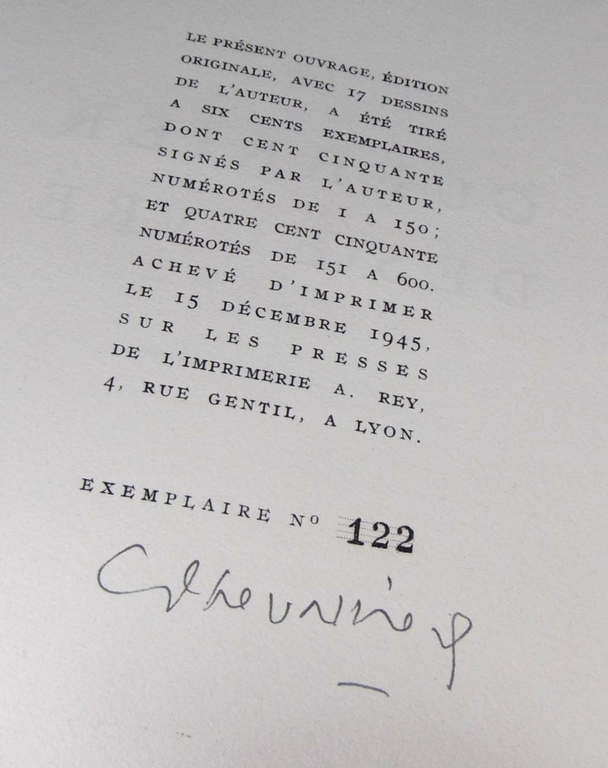 LE PRÉSENT OUVRAGE, ÉDITION
ORIGINALE, AVEC 17 DESSINS
DE L'AUTEUR, A ÉTÉ TIRÉ
A SIX CENTS EXEMPLAIRES,
DONT CENT CINQUANTE
SIGNÉS PAR L'AUTEUR,
NUMÉROTÉS DE 1 A 150 ;
ET QUATRE CENT CINQUANTE
NUMÉROTÉS DE 151 A 600.
ACHEVÉ D'IMPRIMER
LE 15 DÉCEMBRE 1945,
SUR LES PRESSES
DE L'IMPRIMERIE A. REY,
4, RUE GENTIL, A LYON.
EXEMPLAIRE Nº 122